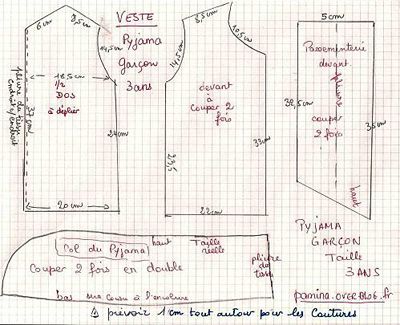 VESTE
Pyjama
garçon
3 ans
6cm
8,5cm
14,5cm
pliure du tissu
endroit/endroit
37cm
18,5cm
1/2
DOS
à déplier
24cm
20cm
8,5cm
10,5cm
14,5cm
devant
à
couper 2
fois
23,5
33cm
22cm
5cm
Passementerie
devant
pliure
couper
2 fois
38,5cm
35cm
haut
Col du Pyjama
haut
Taille
réelle
Couper 2 fois en double
pliure
du
tissu
bas
cousu à l'encolure
PYJAMA
GARÇON
Taille
3 ANS
pamina.overblog.fr
⚠ prévoir 1cm tout autour pour les coutures